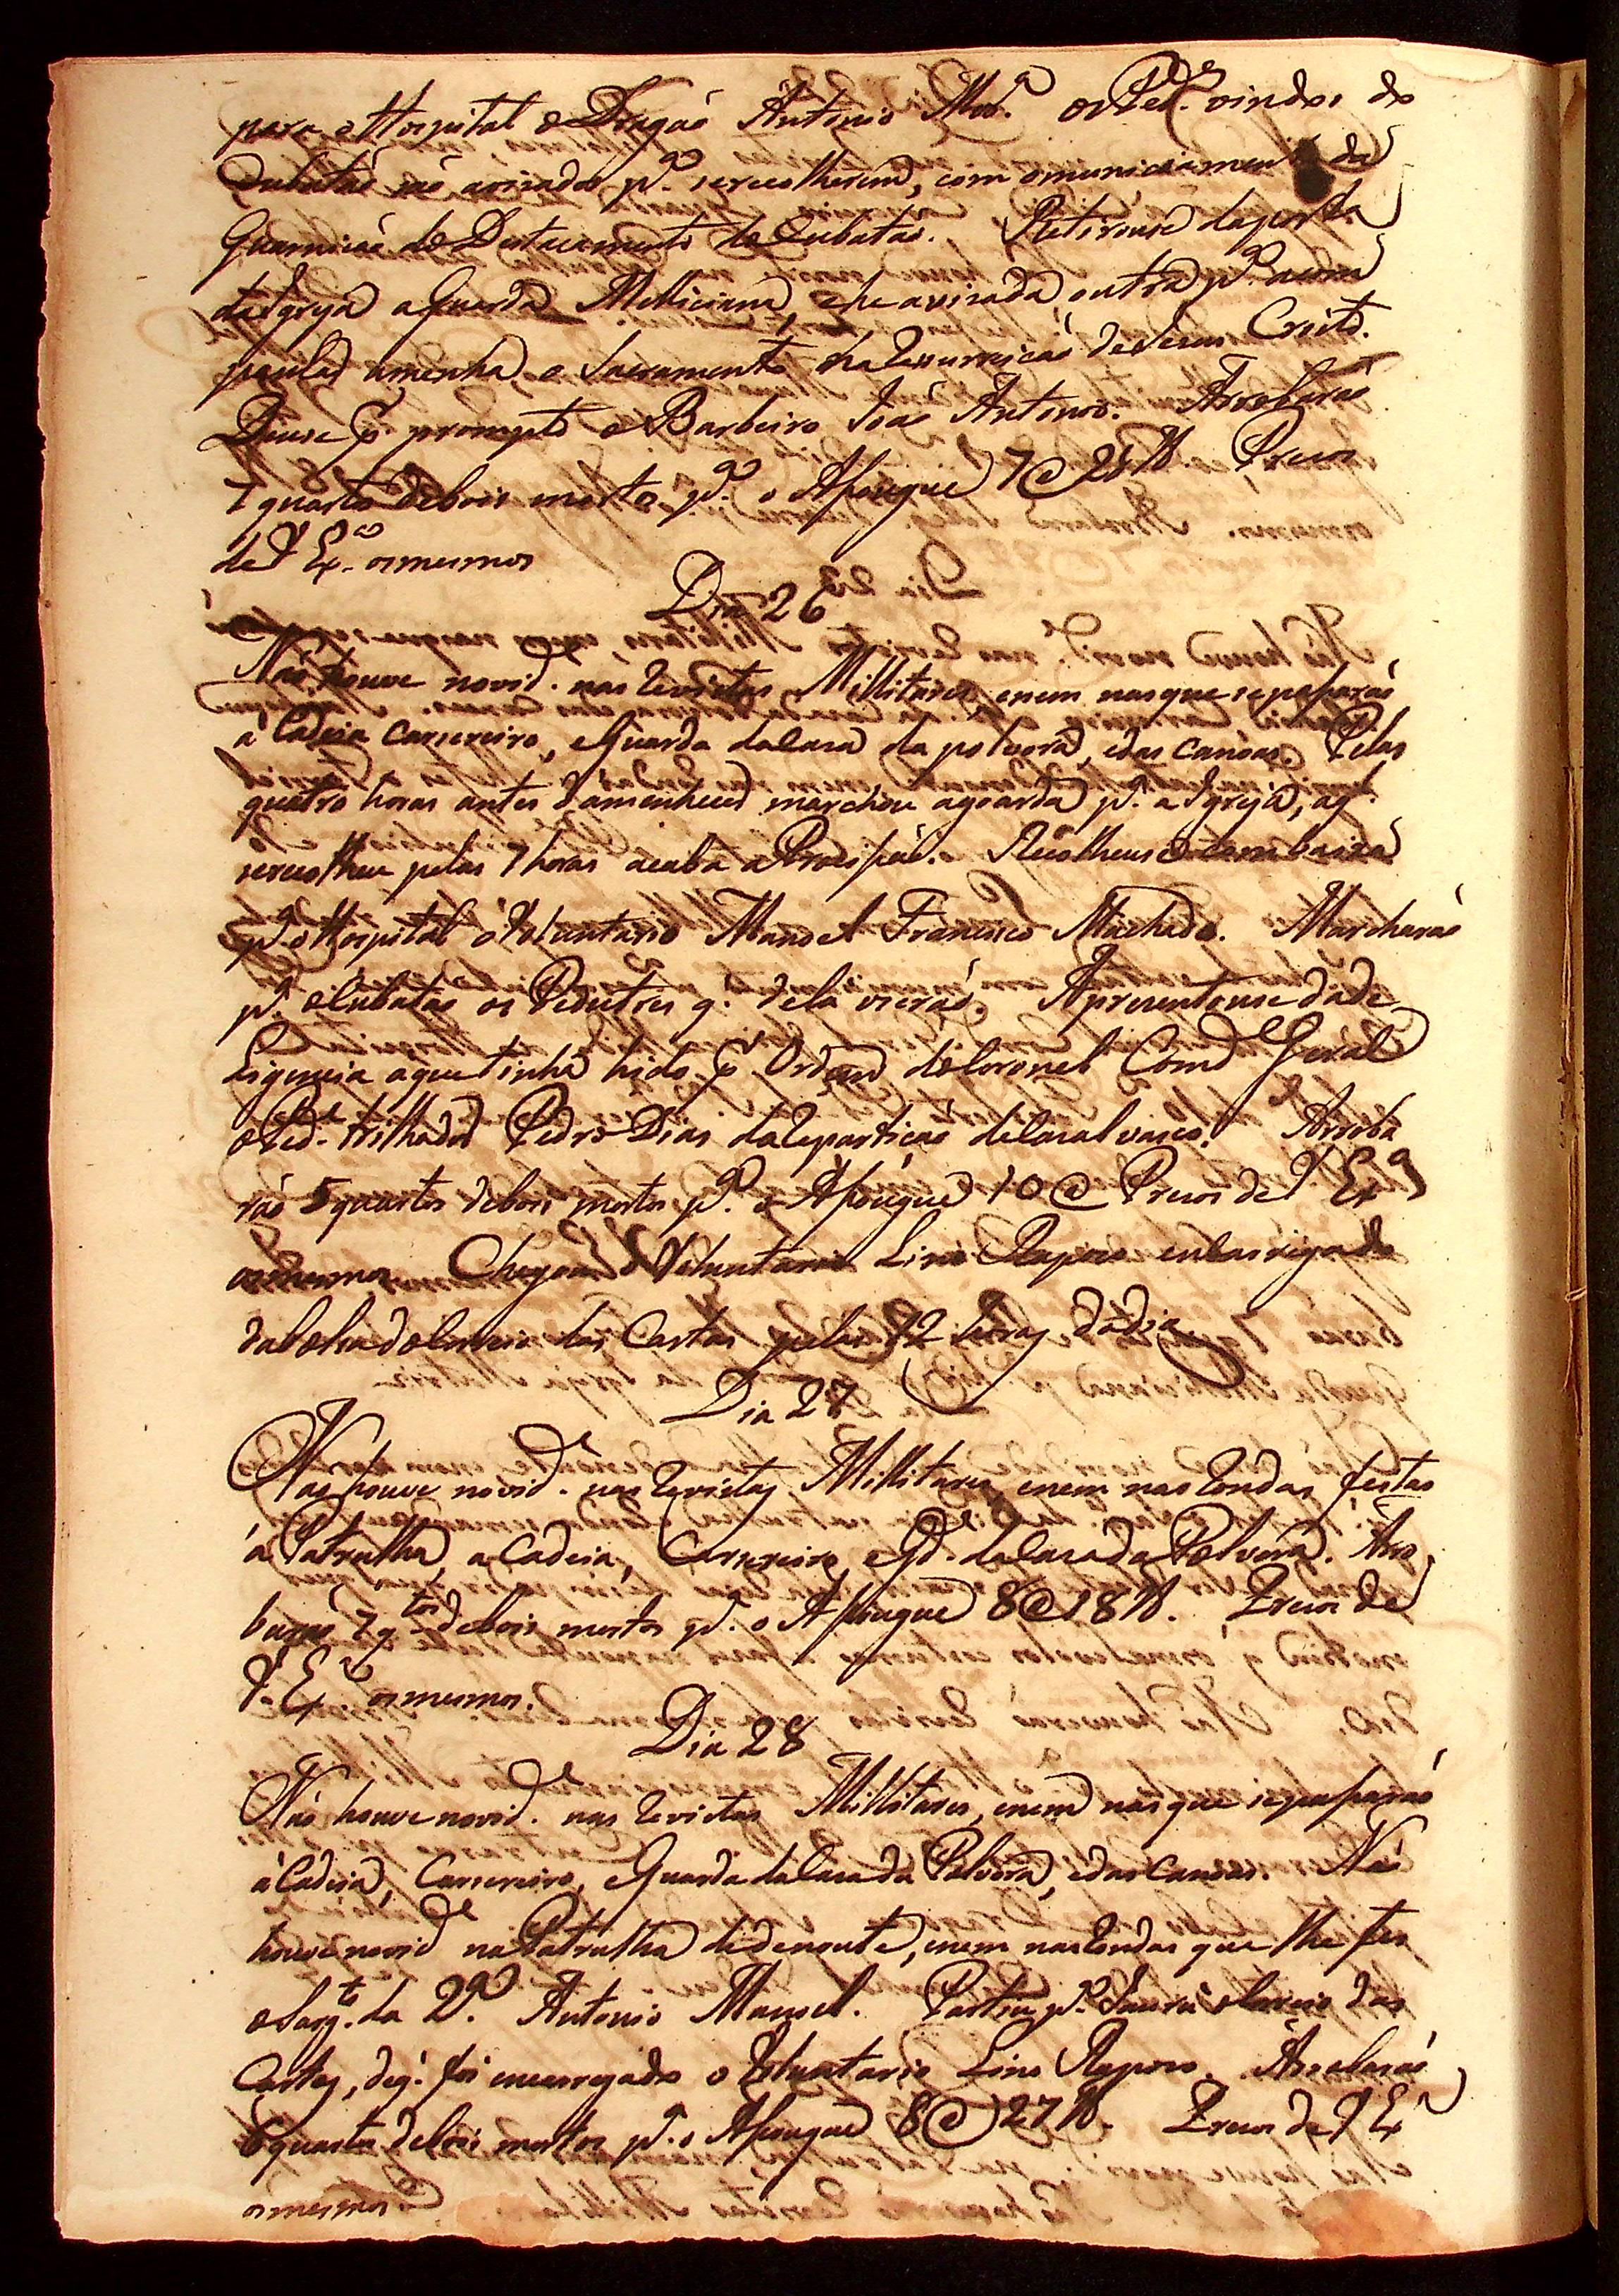 para o Hospital o Dragaõ Antonio os Ped.es vindos do
Cubataõ saõ avizados p.a serecolherem, com omuniciamento da
Guarniçaõ do Destacamento do Cubataõ. Retirouse daporta
daIgreja aGuarda Milliciana, ehe avizada outra p.a acom
panhar amenhã o Sacramento na Ressurreiçaõ deJesus Cristo.
Deuse p. prompto o Barbeiro Joaõ Antonio. Arrobaraõ
7 quartos debois mortos p.a o Asougue 7@ 28 lb. Prezos
de V Ex.a osmesmos
Dia 26
Naõ houve novid.e nas Revistas Millitares, enem nasque sepasaraõ
á Cadeia Carsereiro, eGuarda daCaza da polvora, edas Canoas. Pelas
quatro horas antes damenhecer marchou agoarda p.a a Igreja, aq.
serecolheu pelas 7 horas acaba a Procisaõ. Recolheuse com baixa
p.a o Hospital o Voluntario Manoel Francisco Machado. Marcharaõ
p.a oCubataõ os Pedestres q. dela vieraõ. Aprezentouse dade
Ligencia aque tinha hido p Ordem do Coronel Com.de Geral
o Ped.e trilhador Pedro Dias daRepartiçaõ deCazalvasco. Arroba
raõ 5 quartos debois mortos p.a o Asougue 10@ Prezos de V Ex.a
osmesmos. Chegou o Voluntario Lino Rapozo encarregado
da do Correio das Cartas pelas 12 horas dodia
Dia 27
Naõ houve novid.e nas Revistas Millitares, enem nas Rondas feitas
á Patrulha, a Cadeia, Carsereiro, eG.da daCaza da Polvora. Arro
baraõ 7 q.tos debois mortos p.a o Asougue 8@ 18 lb. Prezos de
V. Ex.a osmesmos.
Dia 28
Naõ houve novid.e nas Revistas Millitares, enem nasque sepasaraõ
áCadeia, Carsereiro, eGuarda daCaza da Polvora, edas Canoas. Naõ
houve novid.e na Patrulha dedenoute, enem nasRondas que lhe fes
o Sarg.to da 2.a Antonio Manoel. Partiu p.a Jaurú oCorreio das
Cartas, deq. foi encarregado o Voluntario Lino Rapozo. Arrobaraõ
6 quartos debois mortos p.a o Asougue 8@ 27 lb. Prezos de V Ex.a
osmesmos